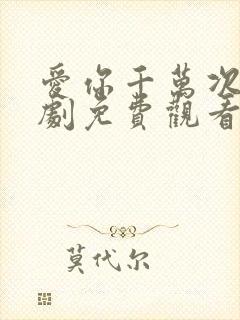 愛你千萬次
劇免費觀看
莫代尔